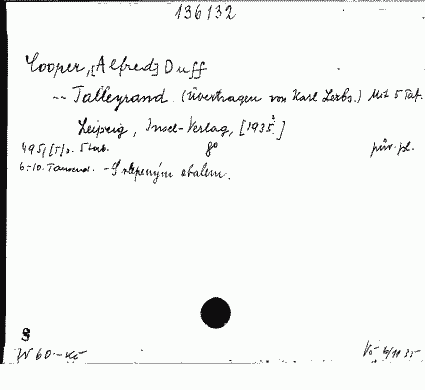 136132
Cooper, [Alfred] Duff
-- Talleyrand. (Übertragen von Karl Lerbs.) Mit 5 Taf.
Leipzig, Insel-Verlag, [1935?]
495, [5] s. 5 tab. 8° pův. pl.
6-10. Tausend. - S slepeným obalem.
8